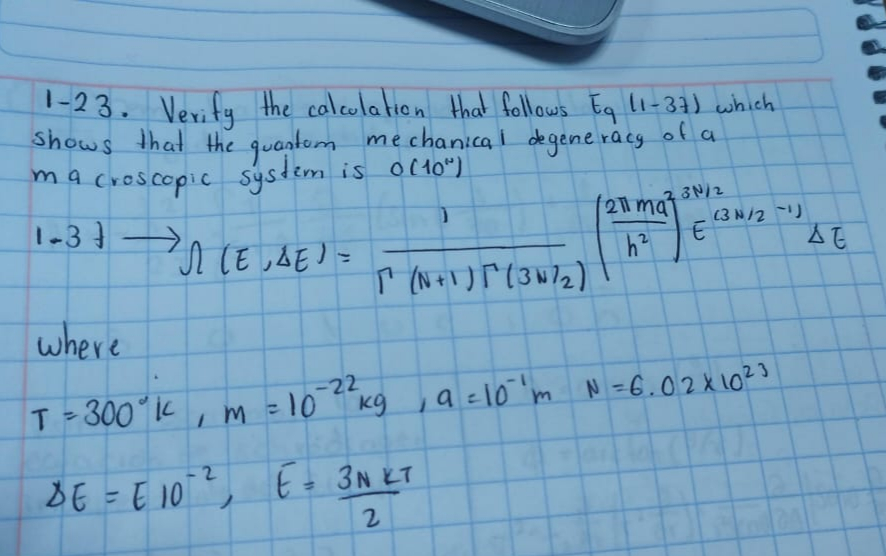 1-23. Verify the calculation that follows Eq (1-37) which
shows that the quantum mechanical degeneracy of a
macroscopic system is O(10ᴺ)
1-37 → Ω(E, ΔE) = 1 / (Γ(N+1) Γ(3N/2)) (2πma²/h²)^(3N/2) E^(3N/2 -1) ΔE
where
T = 300°K, m = 10⁻²² kg, a = 10⁻¹ m N = 6.02×10²³
ΔE = E 10⁻², E = 3NKT/2